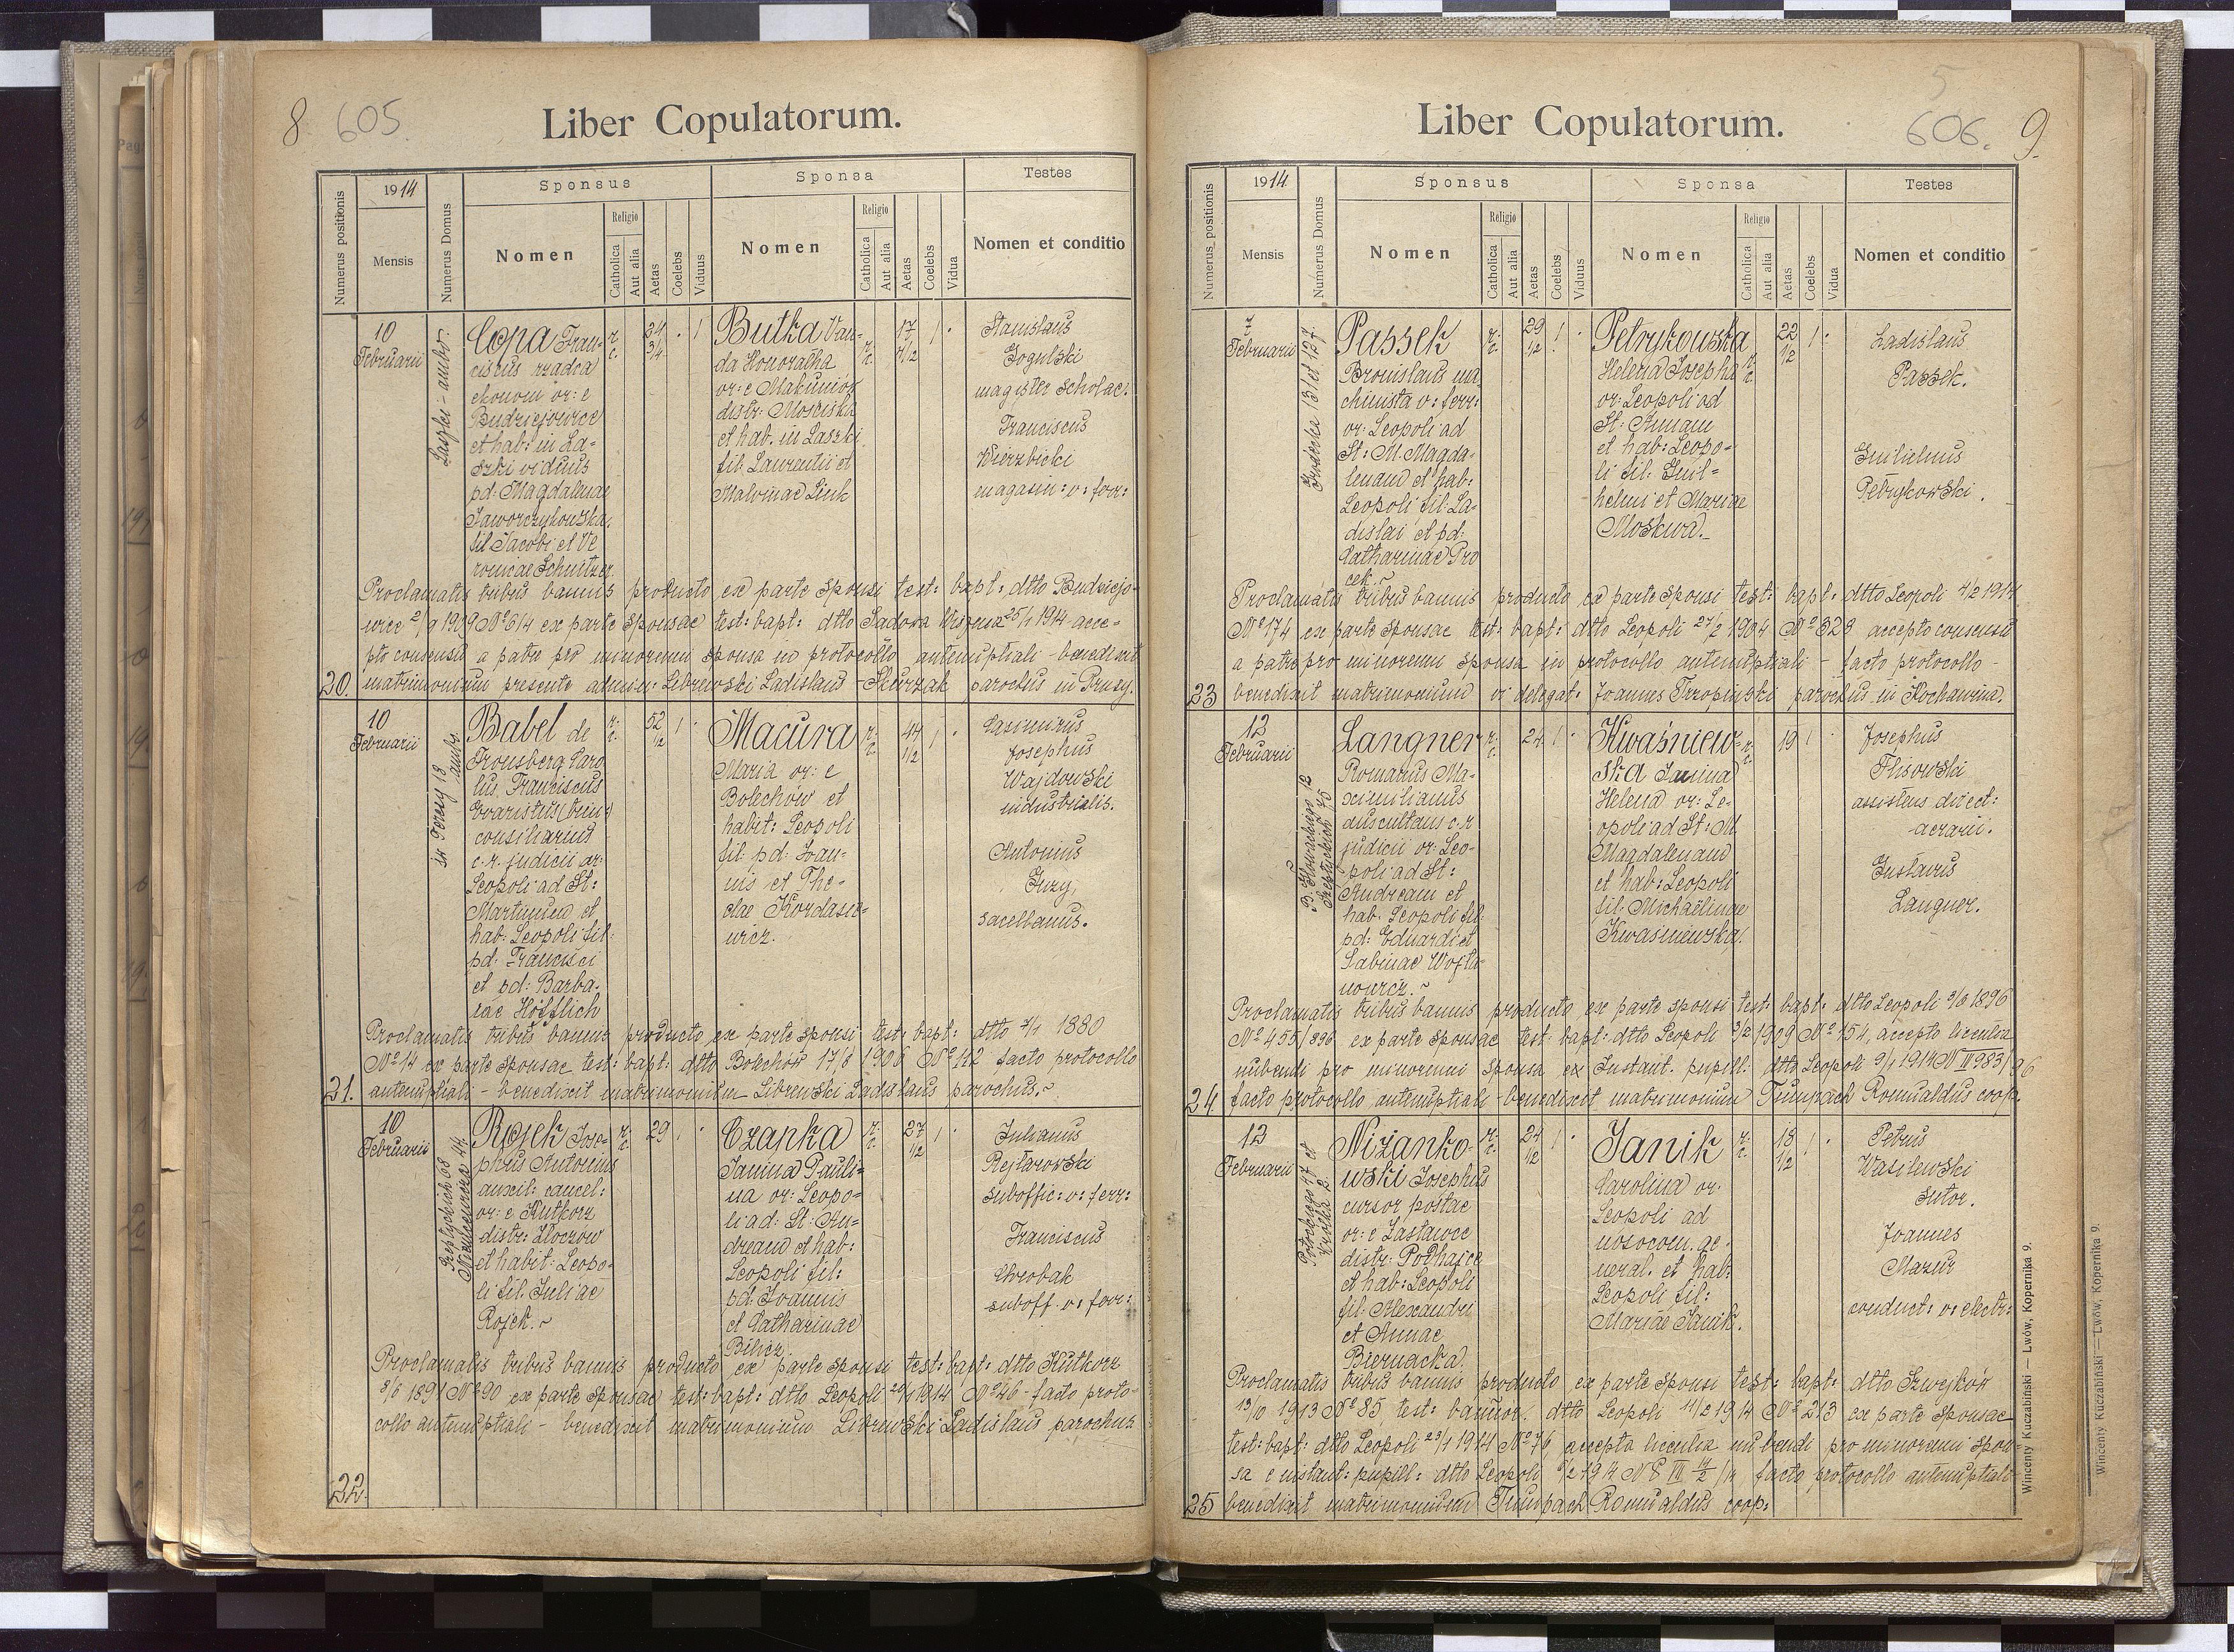 8 605.
Liber Copulatorum.
Numerus positionis
1914
Mensis
Numerus Domus
Sponsus
Nomen
Religio
Catholica
Aut alia
Aetas
Coelebs
Viduus
Sponsa
Nomen
Religio
Catholica
Aut alia
Aetas
Coelebs
Vidua
Testes
Nomen et conditio
10
Februarii
Laszki - ambo.
Copa Fran-
ciscus rządca
ekonom or: e
Budziejowice
et hab: in La-
szki viduus
pd: Magdalenae
Jaworczykowska,
fil Jacobi et Ve
ronicae Schnitzer
r. c.
34 3/4
Butka Van-
da Honoratha
or: e Makuniów
distr: Mościska
et hab. in Laszki
fil: Laurentii et
Malvinae Link
r. c.
17 1/2
Stanislaus
Jogulski
magister scholae.
Franciscus
Wierzbicki
magasin: v: ferr:
Proclamatis tribus bannis producto ex parte sponsi test: bapt: dtto Budziejo-
wice 2/9 1909 Nº 614 ex parte sponsae test: bapt: dtto Sadova Wisznia 25/1 1914 - acce-
pto consensu a patre pro minorenni sponsa in protocollo antenuptiali - benedixit
20. matrimonium presente admin: Librewski Ladislaus - Skurzak parochus in Prusy.
10
Februarii
św Teresy 18
ambo.
Babel de
Fronsberg Caro
lus, Franciscus
Evaristus (trin:)
consiliarius
c. r. judicii or:
Leopoli ad St:
Martinum et
hab: Leopoli fil:
pd: Francisci
et pd: Barba-
rae Höfflich
r. c.
52 1/2
Macura
Maria or: e
Bolechów et
habit: Leopoli
fil: pd: Joan-
nis et The-
clae Kordasie-
wicz.
r. c.
44 1/2
Casimirus
Josephus
Wajdowski
industrialis.
Antonius
Guzy,
sacellanus.
Proclamatis tribus bannis producto ex parte sponsi test: bapt: dtto 7/1 1880
Nº 14 ex parte sponsae test: bapt: dtto Bolechów 17/8 1906 Nº 112 facto protocollo
21. antenuptiali - benedixit matrimonium Librewski Ladislaus parochus.
10
Februarii
Szeptyckich 68
Niemcewicza 44.
Rojek Jose-
phus Antonius
auxil: cancel:
or: e Kutkorz
distr: Złoczów
et habit: Leopo-
li fil: Juliae
Rojek.
r. c.
29
Czapka
Janina Pauli-
na or: Leopo-
li ad: St: An-
dream et hab:
Leopoli fil:
pd: Joannis
et Catharinae
Bilicz.
r. c.
27 1/2
Julianus
Rejtarowski
suboffic: v: ferr:
Franciscus
Chrobak
suboff. v: ferr:
Proclamatis tribus bannis producto ex parte sponsi test: bapt: dtto Kutkorz
8/6 1891 Nº 90 ex parte sponsae test: bapt: dtto Leopoli 29/1 1914 Nº 46 - facto proto-
collo antenuptiali - benedixit matrimonium Librewski Ladislaus parochus
22.
5
606. 9.
Liber Copulatorum.
Numerus positionis
1914
Mensis
Numerus Domus
Sponsus
Nomen
Religio
Catholica
Aut alia
Aetas
Coelebs
Viduus
Sponsa
Nomen
Religio
Catholica
Aut alia
Aetas
Coelebs
Vidua
Testes
Nomen et conditio
Februarii
Grodecka 131 et 127.
Passek
Bronislaus ma
chinista v: ferr:
or: Leopoli ad
St: M. Magda-
lenam et hab:
Leopoli fil: La-
dislai et pd:
Catharinae Pro
cek.
r. c.
29 1/2
Petrykowska
Helena Josepha
or: Leopoli ad
St: Annam
et hab: Leopo-
li fil: Guil-
helmi et Mariae
Moskwa.
r. c.
22 1/2
Ladislaus
Passek.
Guilielmus
Petrykowski.
Proclamatis tribus bannis producto ex parte sponsi test: bapt: dtto Leopoli 4/2 1914
Nº 174 ex parte sponsae test: bapt: dtto Leopoli 27/2 1904 Nº 328 accepto consensu
a patre pro minorenni sponsa in protocollo antenuptiali - facto protocollo -
23 benedixit matrimonium vi delegat: Joannes Trzopiński parochus in Kochawina.
12
Februarii
B. Głowackiego 12
Szeptyckich 40
Langner
Romanus Ma-
ximilianus
auscultans c. r
judicii or: Leo-
poli ad St:
Andream et
hab: Leopoli fil:
pd: Eduardi et
Sabinae Wojta-
nowicz.
r. c.
24
Kwaśniew-
ska Janina
Helena or: Le-
opoli ad St: M.
Magdalenam
et hab: Leopoli
fil: Michaëlinae
Kwaśniewska.
r. c.
19
Josephus
Flisowski
assistens direct:
aerarii.
Gustavus
Langner.
Proclamatis tribus bannis producto ex parte sponsi test: bapt: dtto Leopoli 3/8 1896
Nº 455/896 ex parte sponsae test: bapt: dtto Leopoli 3/2 1909 Nº 154, accepta licentia
nubendi pro minorenni sponsa ex Instant. pupill: dtto Leopoli 9/1 1914 N III 983/96
24. facto protocollo antenuptiali - benedixit matrimonium Timpach Romualdus coop.
12
Februarii
Potockiego 47 et
Krótka 2.
Niżanko-
wski Josephus
cursor postae
or: e Zastawce
distr: Podhajce
et hab: Leopoli
fil: Alexandri
et Annae
Biernacka.
r. c.
24 1/2
Janik
Carolina or:
Leopoli ad
nosocom. ge-
neral. et hab:
Leopoli fil:
Mariae Janik.
r. c.
18 1/2
Petrus
Wasilewski
sutor.
Joannes
Mazur
conduct: v: electr:
Proclamatis tribus bannis producto ex parte sponsi test: bapt: dtto Szwejków
13/10 1913 Nº 85, test: bannor. dtto Leopoli 11/2 1914 Nº 213 ex parte sponsae
test: bapt: dtto Leopoli 23/1 1914 Nº 76, accepta licentia nubendi pro minorenni spon
sa e instant: pupill: dtto Leopoli 6/2 1914 facto protocollo antenuptiali
25 benedixit matrimonium Timpach Romualdus coop:
Wincenty Kuczabiński — Lwów, Kopernika 9.
Wincenty Kuczabiński — Lwów, Kopernika 9.